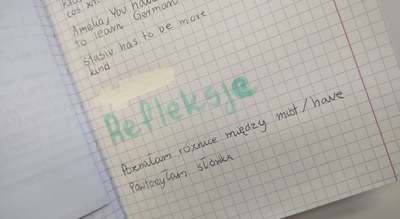 Amelia, you have
to learn German
Stasiu has to be more
kind
Refleksje
Poznałam różnice między must/have
Powtórzyłam słówka